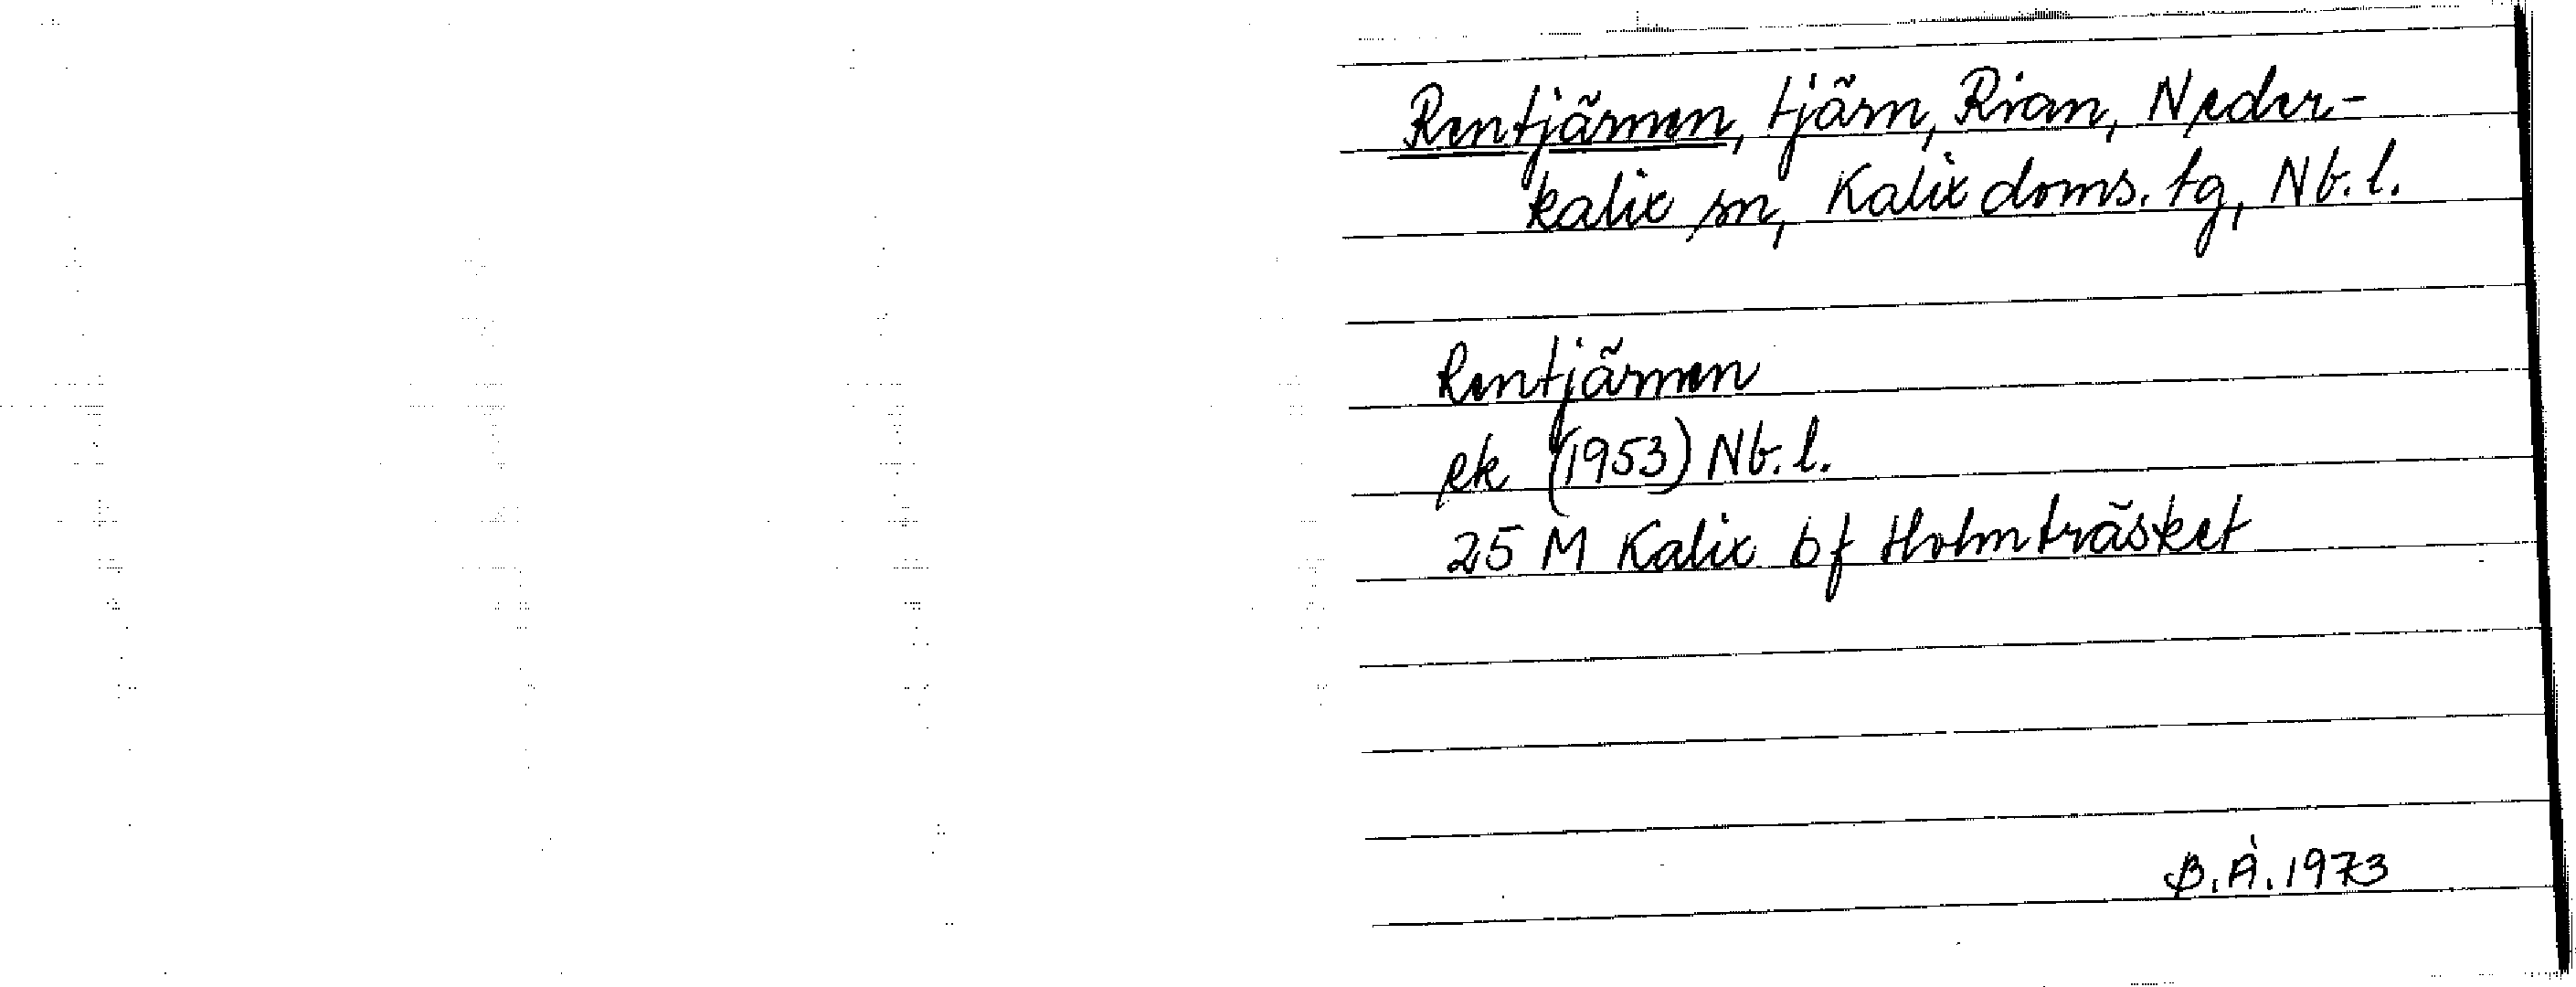 Rentjärnen, tjärn, Rian, Neder-
kalix sn, Kalix doms. tg, Nb. l.
Rentjärnen
ek (1953) Nb. l.
25 M Kalix bf Holmträsket
B. Å. 1973